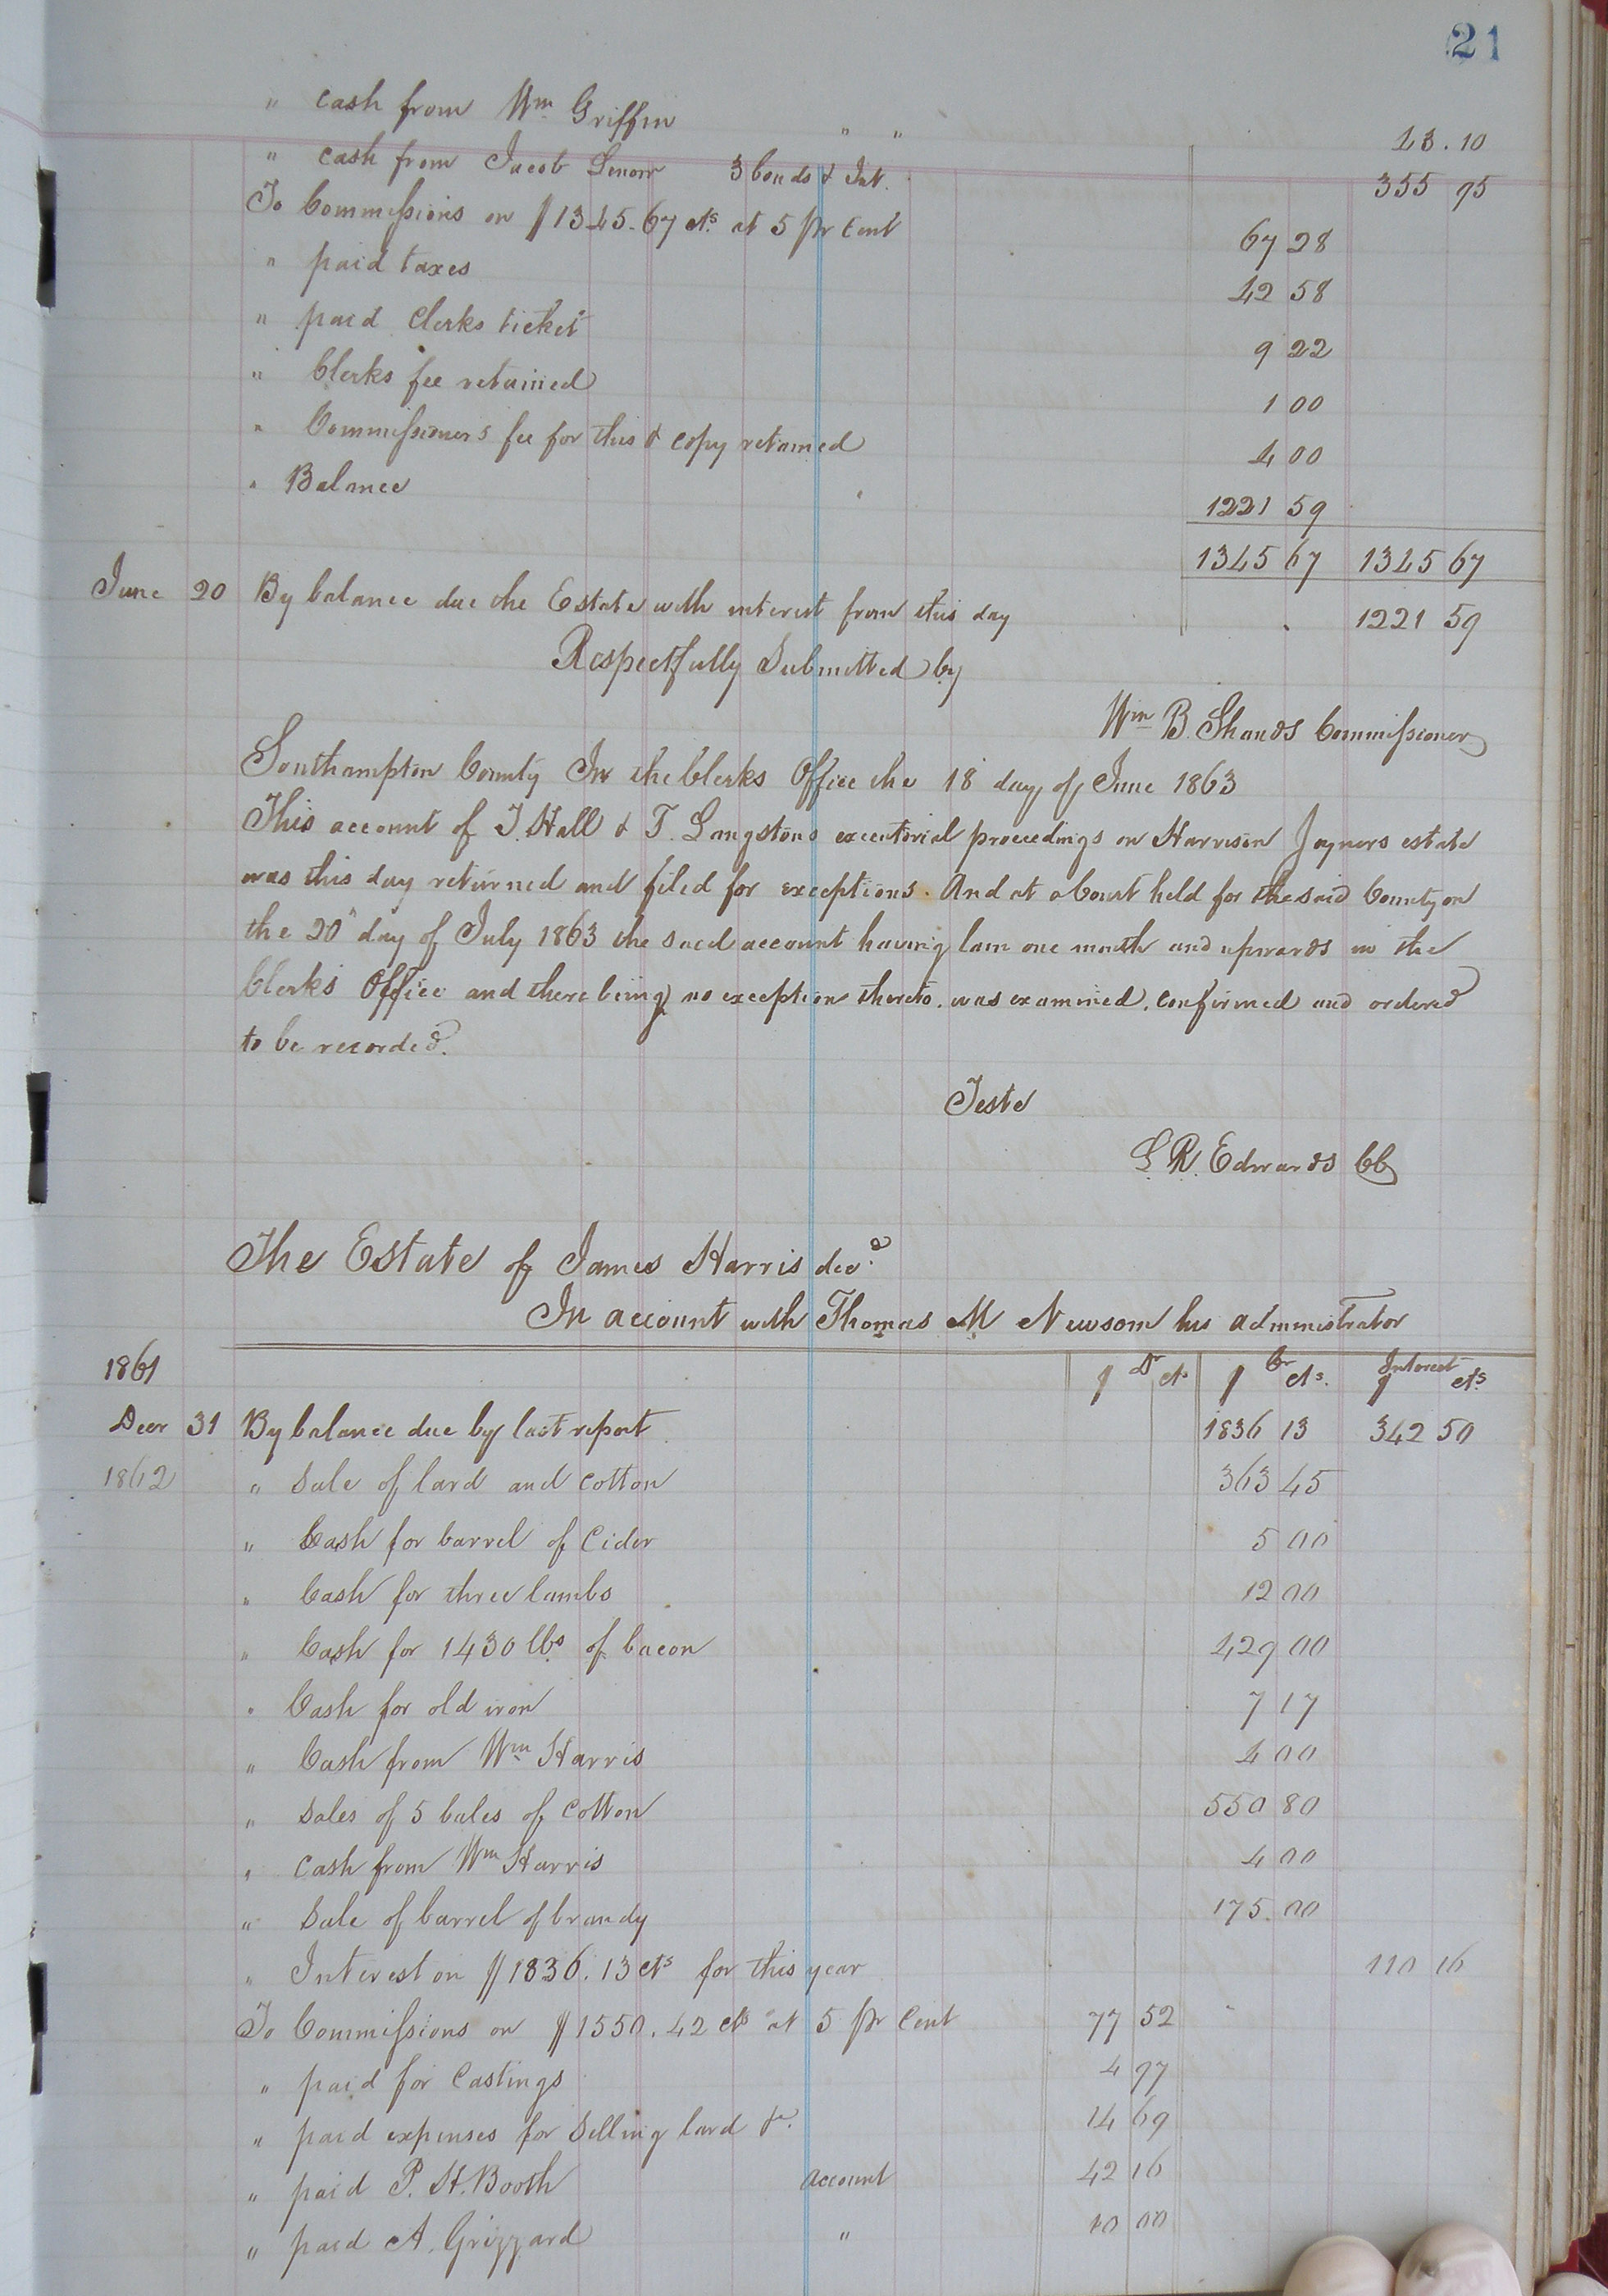 21
" cash from Wm Griffin " " 13.10
" cash from Jacob 3 bonds & Int. 355 75
To Commissions on $1345.67 cts at 5 pr Cent 67 28
" paid taxes 42 58
" paid Clerks ticket 9 22
" Clerks fee retained 1 00
" Commissioners fee for this & copy retained 4 00
" Balance 1221 59
1345 67 1345 67
June 20 By balance due the Estate with interest from this day 1221 59
Respectfully Submitted by
Wm B. Shands Commissioner
Southampton County In the Clerks Office the 18 day of June 1863
This account of J. Hall & T. Langstons executorial proceedings on Harrison Joyners estate
was this day returned and filed for exceptions. And at a Court held for the said County on
the 20" day of July 1863 the said account having lain one month and upwards in the
Clerks Office and there being no exception thereto. was examined, confirmed and ordered
to be recorded.
Teste
L. R. Edwards CC
The Estate of James Harris decd.
In account with Thomas M Newsom his administrator
1861 $ Dr cts $ Cr cts. $ Interest cts
Decr 31 By balance due by last report 1836 13 342 50
1862 " Sale of lard and cotton 363 45
" Cash for barrel of Cider 5 00
" Cash for three lambs 12 00
" Cash for 1430 lbs of bacon 429 00
" Cash for old iron 7 17
" Cash from Wm Harris 4 00
" Sales of 5 bales of Cotton 550 80
" Cash from Wm Harris 4 00
" Sale of barrel of brandy 175.00
" Interest on $1836.13 cts for this year 110 16
To Commissions on $1550.42 cts at 5 pr Cent 77 52
" paid for Castings 4 97
" paid expenses for selling lard &c. 14 69
" paid P. H. Booth account 42 16
" paid A. Grizzard " 10 00